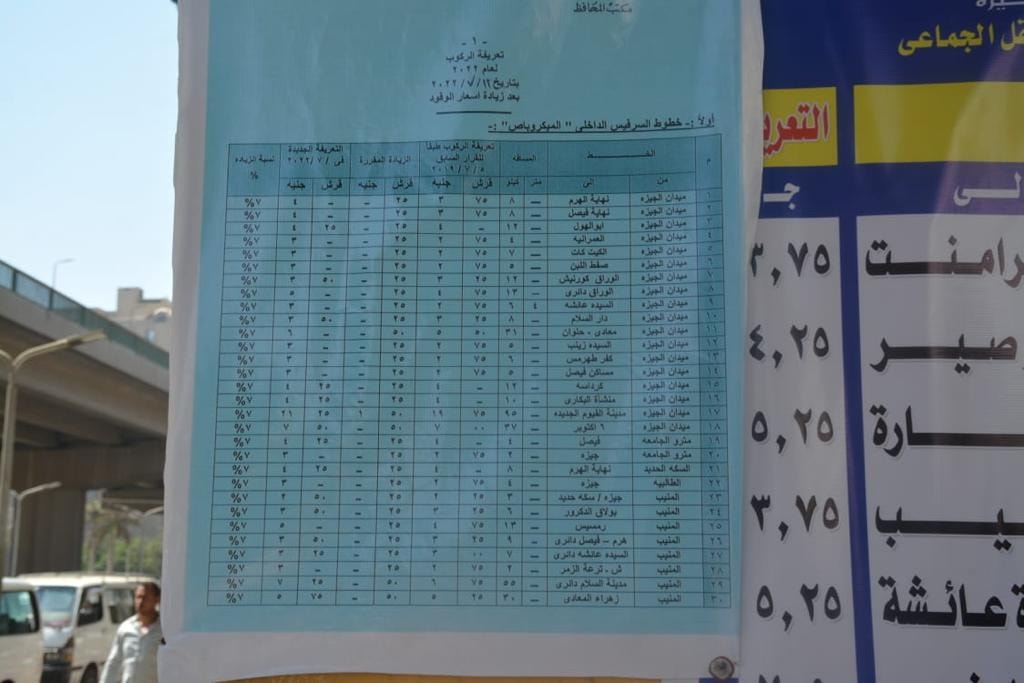 مكتب المحافظ
- ١ -
تعريفة الركوب
لعام ٢٠٢٢
بتاريخ ١٦/ ٧/ ٢٠٢٢
بعد زيادة اسعار الوقود
أولاً :- خطوط السرفيس الداخلى " الميكروباص" :-
م الخـــــط المسافه تعريفة الركوب طبقاً للقرار السابق ٥ / ٧ / ٢٠١٩ الزيادة المقررة التعريفة الجديدة فى / ٧ / ٢٠٢٢ نسبة الزياده %
من إلى متر كيلو قرش جنيه قرش جنيه قرش جنيه
١ ميدان الجيزه نهاية الهرم — ٨ ٧٥ ٣ ٢٥ – – ٤ ٧%
٢ ميدان الجيزه نهاية فيصل — ٨ ٧٥ ٣ ٢٥ – – ٤ ٧%
٣ ميدان الجيزه ابوالهول — ١٢ – ٤ ٢٥ – ٢٥ ٤ ٧%
٤ ميدان الجيزه العمرانيه — ٤ ٧٥ ٢ ٢٥ – – ٣ ٧%
٥ ميدان الجيزه الكيت كات — ٧ ٧٥ ٢ ٢٥ – – ٣ ٧%
٦ ميدان الجيزه صفط اللبن — ٥ ٧٥ ٢ ٢٥ – – ٣ ٧%
٧ ميدان الجيزه الوراق كورنيش — ١٢ ٢٥ ٣ ٢٥ – ٥٠ ٣ ٧%
٨ ميدان الجيزه الوراق دائرى — ١٣ ٧٥ ٤ ٢٥ – – ٥ ٧%
٩ ميدان الجيزه السيده عائشه ٤ ٦ ٧٥ ٢ ٢٥ – – ٣ ٧%
١٠ ميدان الجيزه دار السلام — ٨ ٢٥ ٣ ٢٥ – ٥٠ ٣ ٧%
١١ ميدان الجيزه معادى - حلوان — ٣١ ٥٠ ٥ ٥٠ – – ٦ ٧%
١٢ ميدان الجيزه السيده زينب — ٥ ٧٥ ٢ ٢٥ – – ٣ ٧%
١٣ ميدان الجيزه كفر طهرمس — ٦ ٧٥ ٢ ٢٥ – – ٣ ٧%
١٤ ميدان الجيزه مساكن فيصل — ٥ ٧٥ ٢ ٢٥ – – ٣ ٧%
١٥ ميدان الجيزه كرداسه — ١٢ – ٤ ٢٥ – ٢٥ ٤ ٧%
١٦ ميدان الجيزه منشأة البكارى — ١٠ – ٤ ٢٥ – ٢٥ ٤ ٧%
١٧ ميدان الجيزه مدينة الفيوم الجديده — ٩٥ ٧٥ ١٩ ٥٠ ١ ٢٥ ٢١ ٧%
١٨ ميدان الجيزه ٦ اكتوبر — ٣٧ ٠٠ ٧ ٥٠ – ٥٠ ٧ ٧%
١٩ مترو الجامعه فيصل — ٤ – ٤ ٢٥ – ٢٥ ٤ ٧%
٢٠ مترو الجامعه جيزه — ٢ ٧٥ ٢ ٢٥ – – ٣ ٧%
٢١ السكه الحديد نهاية الهرم — ٨ – ٤ ٢٥ – ٢٥ ٤ ٧%
٢٢ الطالبيه جيزه — ٤ ٧٥ ٢ ٢٥ – – ٣ ٧%
٢٣ المنيب جيزه / سكه حديد — ٣ ٢٥ ٢ ٢٥ – ٥٠ ٢ ٧%
٢٤ المنيب بولاق الدكرور — ٦ ٢٥ ٣ ٢٥ – ٥٠ ٣ ٧%
٢٥ المنيب رمسيس — ١٣ ٧٥ ٤ ٢٥ – – ٥ ٧%
٢٦ المنيب هرم – فيصل دائرى — ٩ ٢٥ ٣ ٢٥ – ٥٠ ٣ ٧%
٢٧ المنيب السيده عائشه دائرى — ٧ ٠٠ ٣ ٢٥ – ٢٥ ٣ ٧%
٢٨ المنيب ش . ترعة الزمر — ٢ ٧٥ ٢ ٢٥ – – ٣ ٧%
٢٩ المنيب مدينة السلام دائرى — ٥٥ ٧٥ ٦ ٥٠ – ٢٥ ٧ ٧%
٣٠ المنيب زهراء المعادى — ٣٠ ٢٥ ٥ ٥٠ – ٧٥ ٥ ٧%
الجماعى
التعري
ـلى جـ
رامنت ٣,٧٥
صير ٤,٢٥
ارة ٥,٢٥
يب ٣,٧٥
ة عائشة ٥,٢٥